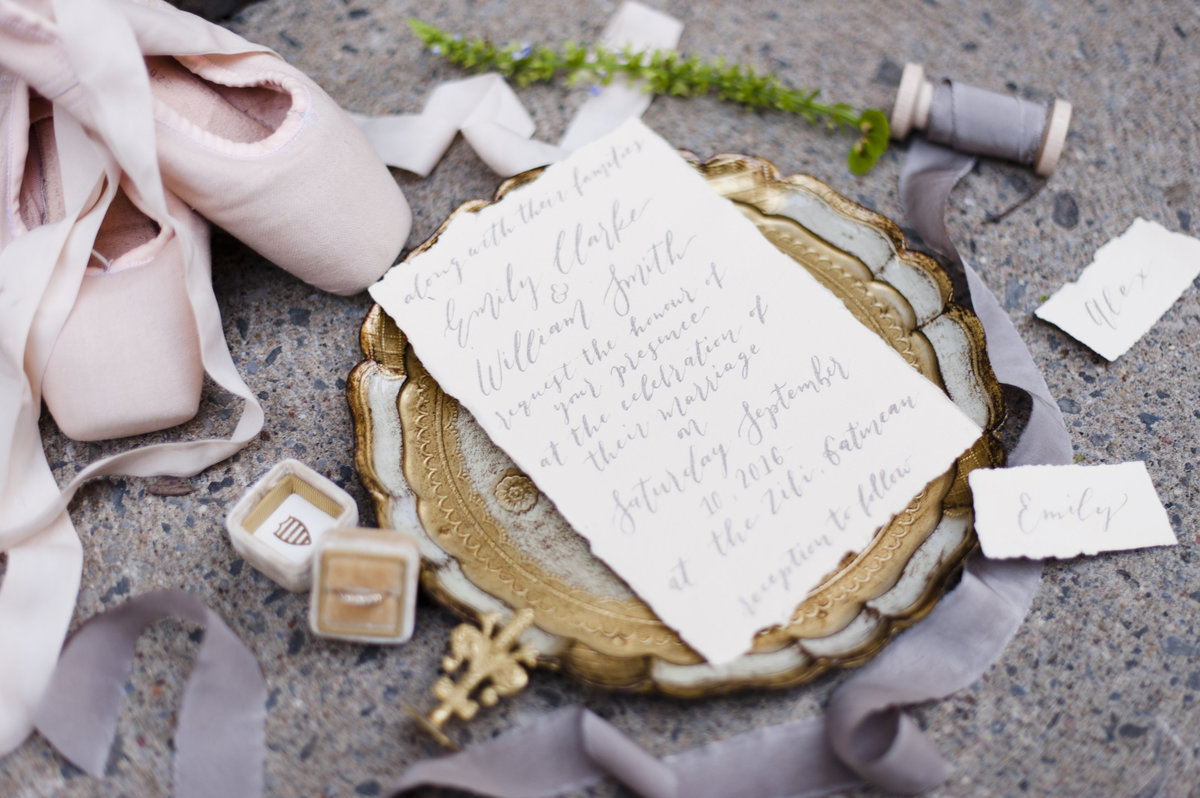 along with their families
Emily Clarke
&
William Smith
request the honour of
your presence
at the celebration of
their marriage
on
Saturday September
10, 2016
at the Zibi, Gatineau
reception to follow
Alex
Emily